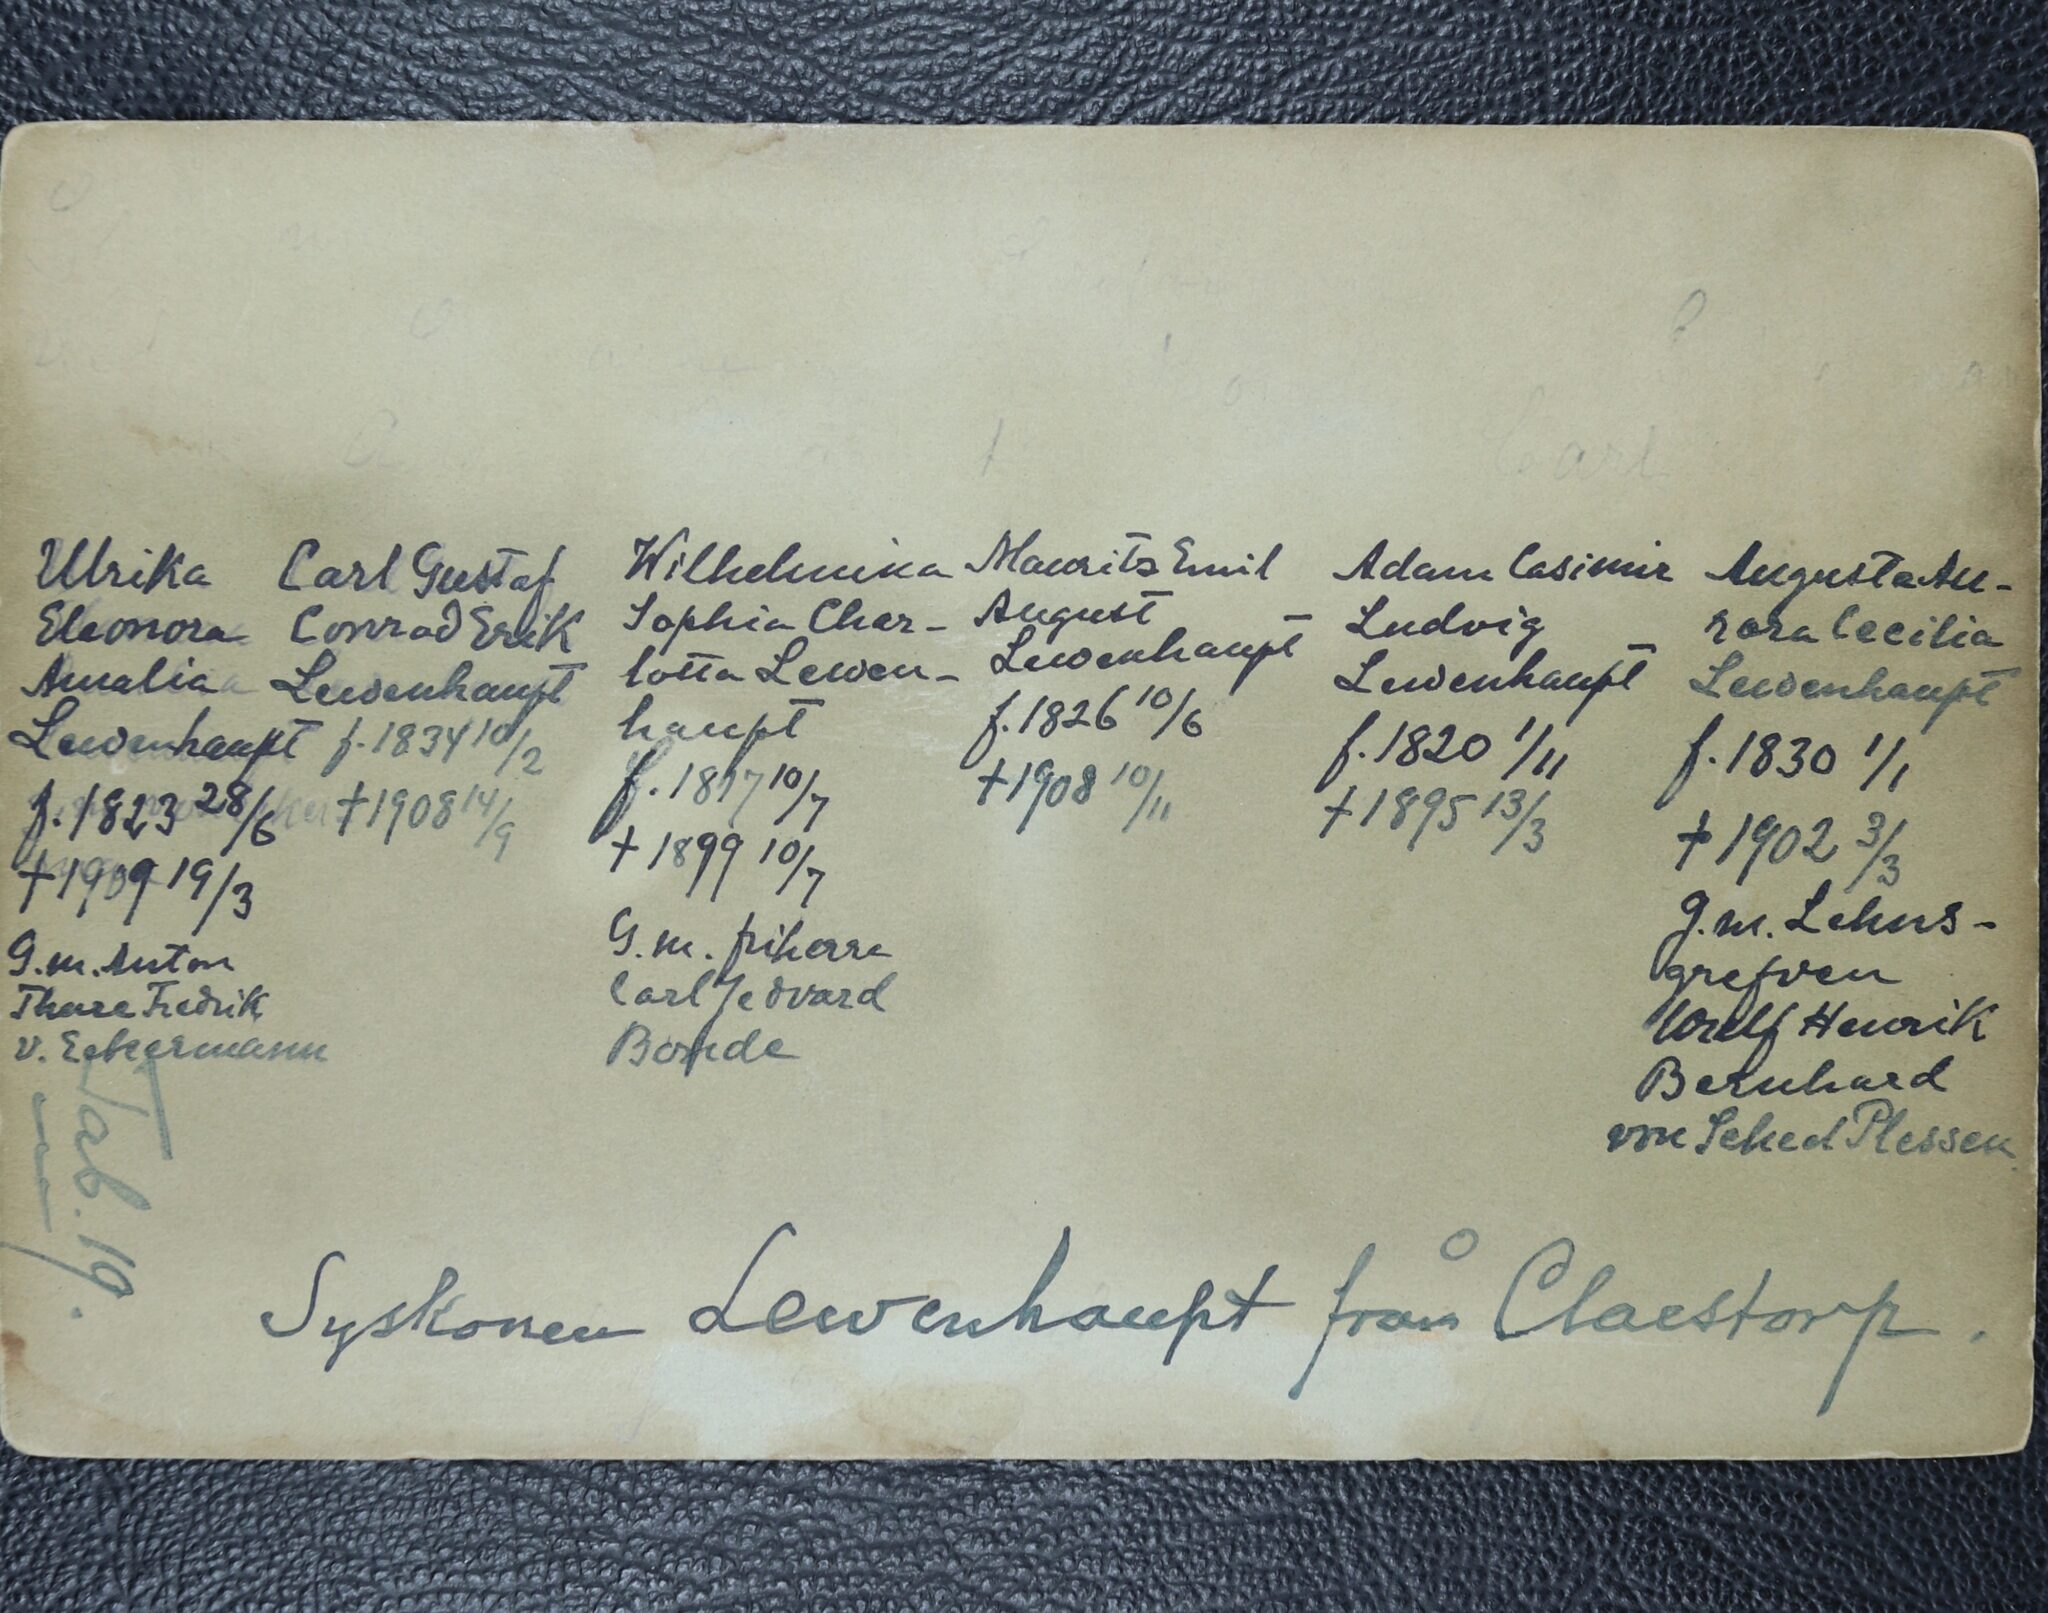 Ulrika
Eleonora
Amalia
Lewenhaupt
f. 1823 28/6
† 1909 19/3
G.m. Anton
Thure Fredrik
v. Eckermann
Carl Gustaf
Conrad Erik
Lewenhaupt
f. 1834 10/2
† 1908 14/9
Wilhelmina
Sophia Char-
lotta Lewen-
haupt
f. 1817 10/7
† 1899 10/7
G.m. friherre
Carl Jedvard
Bonde
Mauritz Emil
August
Lewenhaupt
f. 1826 10/6
† 1908 10/11
Adam Casimir
Ludvig
Lewenhaupt
f. 1820 1/11
† 1895 13/3
Augusta Au-
rora Cecilia
Lewenhaupt
f. 1830 1/1
† 1902 3/3
G.m. Lehns-
grefven
Wulf Henrik
Bernhard
von Schéel Plessen
Tab. 19.
Syskonen Lewenhaupt från Claestorp.
Carl